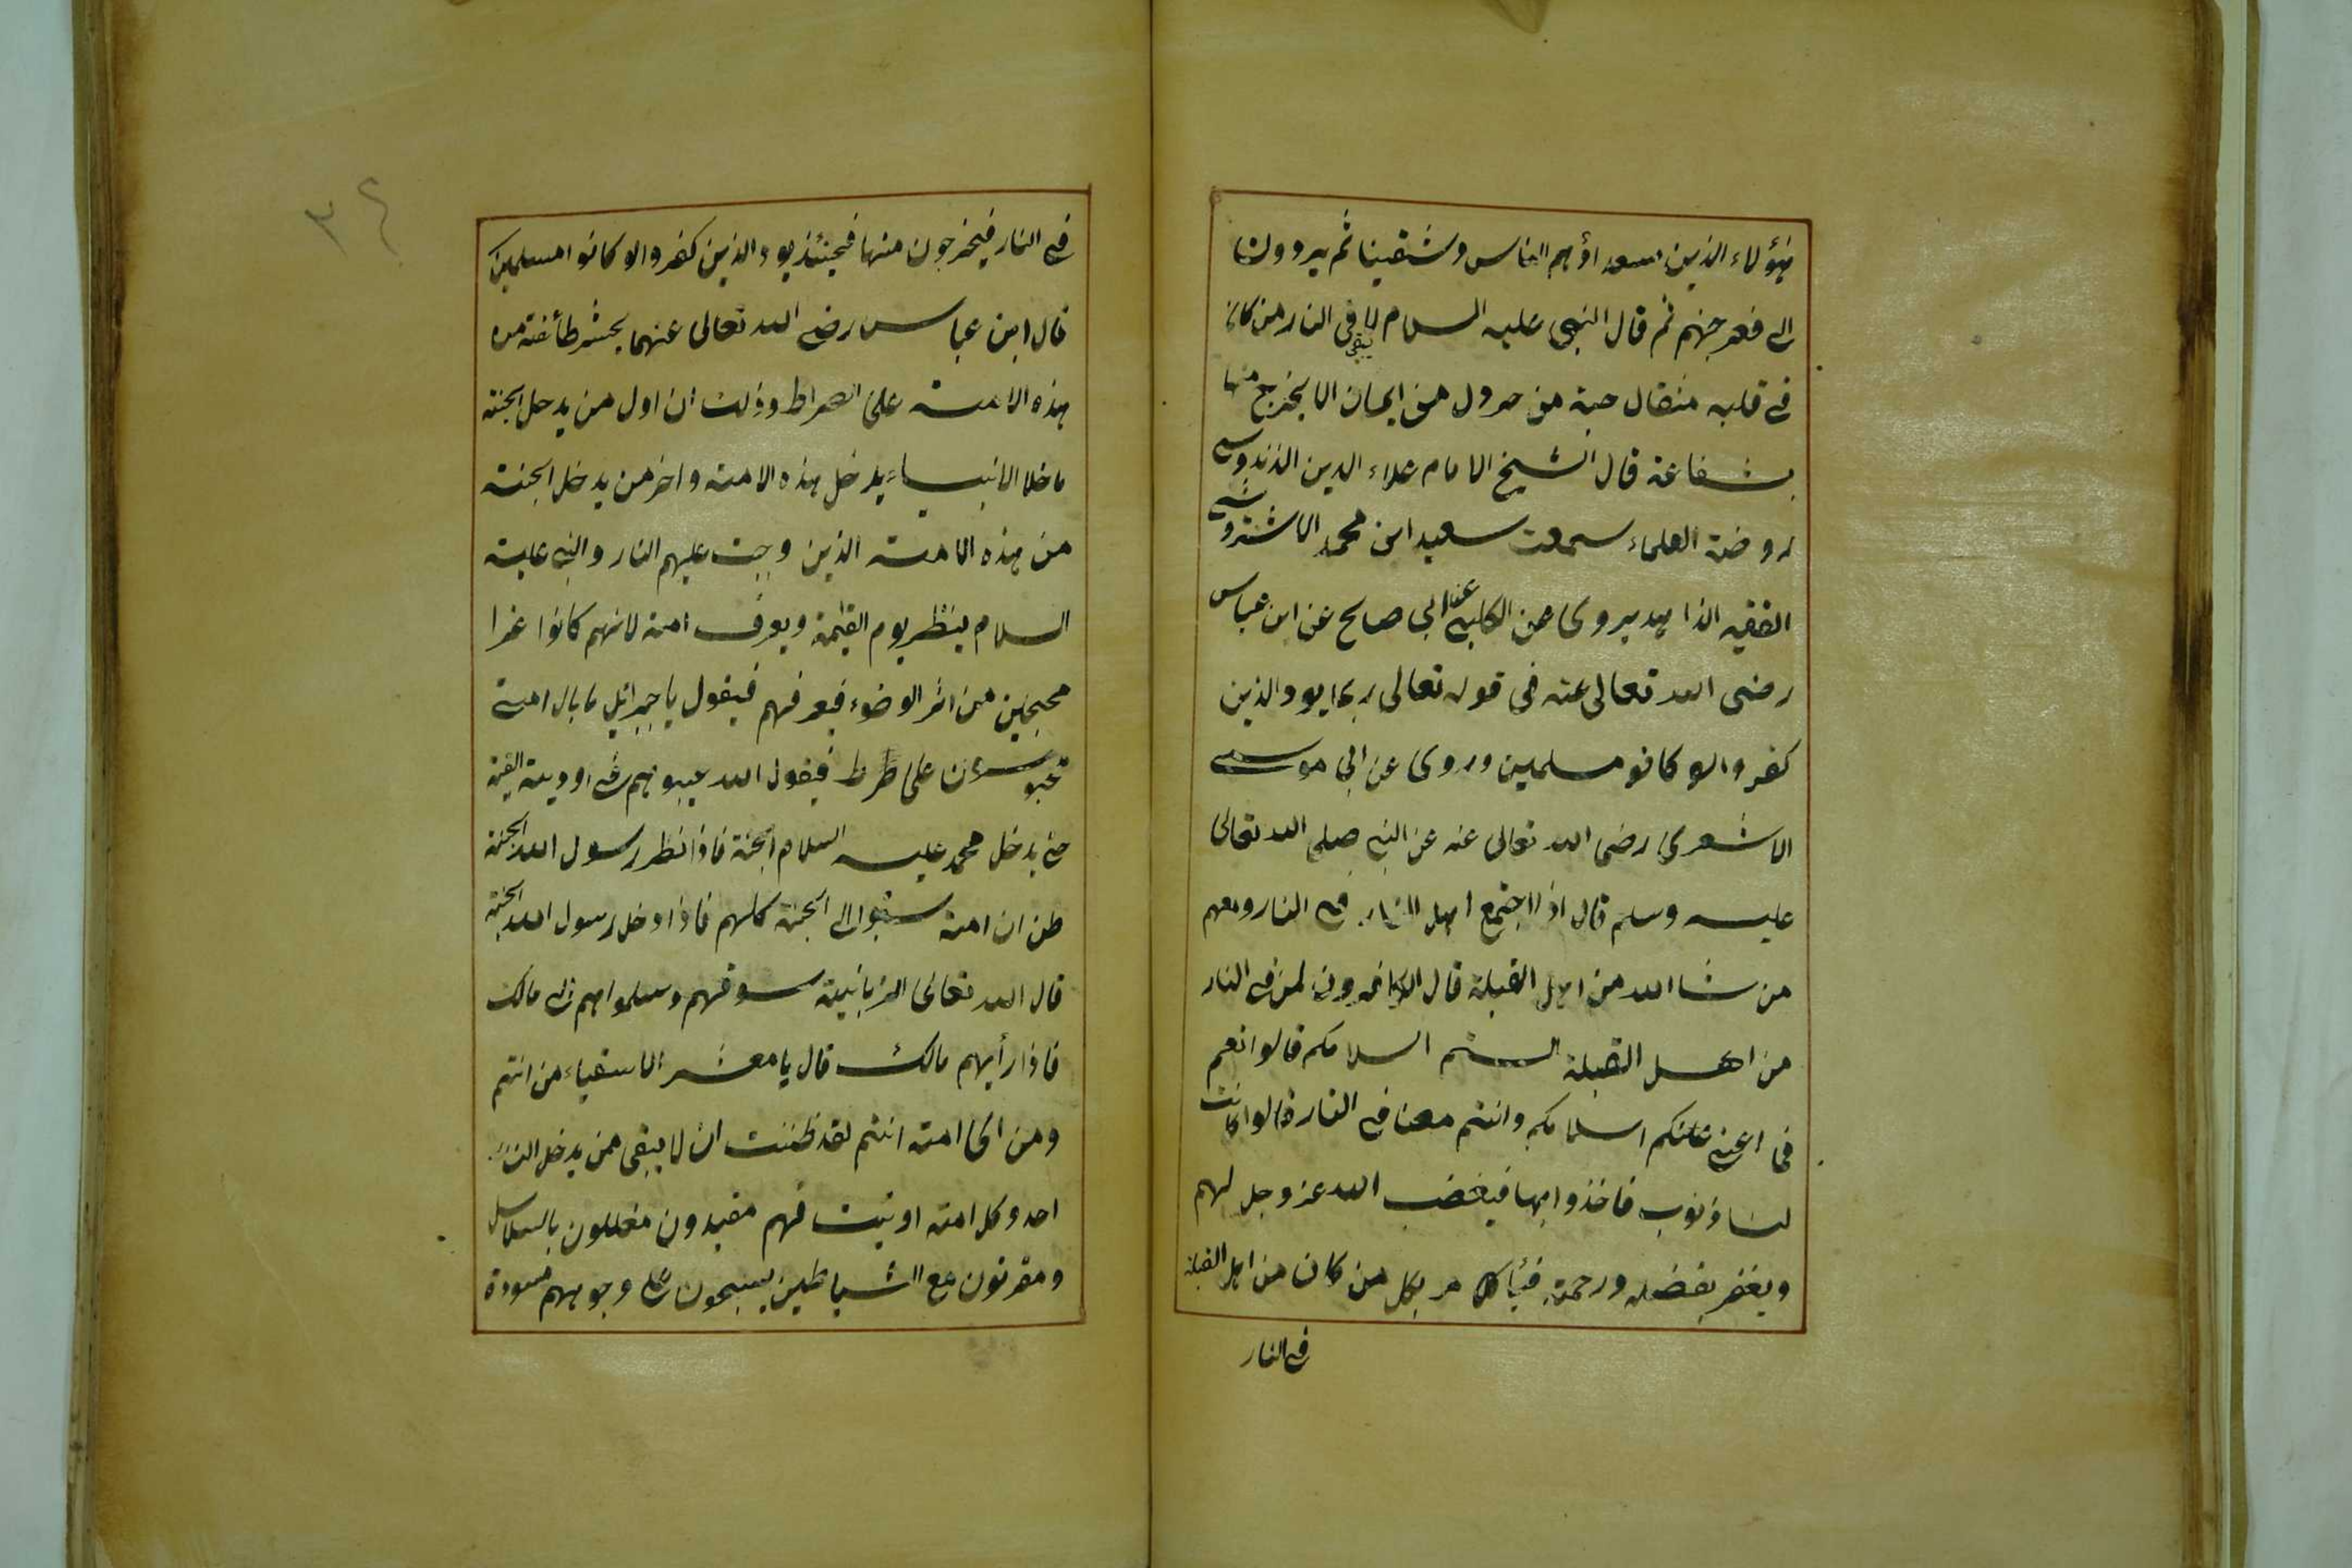 هؤلاء الذين سعد أوهم الناس وشقينا ثم يردون
الى قعر جهنم ثم قال النبي عليه السلام لا يبقى فى النار من كان
فى قلبه مثقال حبة من خردل من ايمان الا يخرج منها
بشفاعة قال الشيخ الامام علاء الدين الذندوسى
روضة العلماء سمعت سعيد ابن محمد الاشتروشى
الفقيه الزاهد يروى عن الكلبى عن ابى صالح عن ابن عباس
رضى الله تعالى عنه فى قوله تعالى ربما يود الذين
كفروا لو كانوا مسلمين وروى عن ابى موسى
الاشعرى رضى الله تعالى عنه عن النبى صلى الله تعالى
عليه وسلم قال اذا اجتمع اهل النار فى النار ومعهم
من شا الله من اهل القبلة قال الكافرون لمن فى النار
من اهل القبلة الستم السلامكم قالوا نعم
فما اغنى عنكم اسلامكم وانتم معنا فى النار قالوا كانت
لنا ذنوب فاخذوا بها فيغضب الله عز وجل لهم
ويغفر بفضله ورحمته فيأمر بكل من كان من اهل القبلة
فى النار
٣٤
فى النار فيخرجون منها فحينئذ يود الذين كفروا لو كانوا مسلمين
قال ابن عباس رضى الله تعالى عنهما يحشر طائفة من
هذه الامة على الصراط وذلك ان اول من يدخل الجنة
ما خلا الانبياء يدخل هذه الامة واخر من يدخل الجنة
من هذه الامة الذين وجبت عليهم النار والنبى عليه
السلام ينظر يوم القيمة ويعرف امته لانهم كانوا غرا
محجلين من اثر الوضوء فيعرفهم فيقول يا جبرائيل ما بال امتى
محبوسون على الصراط فيقول الله غيبوهم فى اودية القيمة
حتى يدخل محمد عليه السلام الجنة فاذا نظر رسول الله الجنة
ظن ان امته سبقوا الى الجنة كلهم فاذا دخل رسول الله الجنة
قال الله تعالى الزبانية سوقهم وسلموا هم الى مالك
فاذا رأيهم مالك قال يا معشر الاشقياء من انتم
ومن اى امة انتم لقد ظننت ان لا يبقى من يدخل النار
احد وكل امة اوتيت فهم مقيدون مغللون بالسلاسل
ومقرنون مع الشياطين يسبحون على وجوههم مسودة